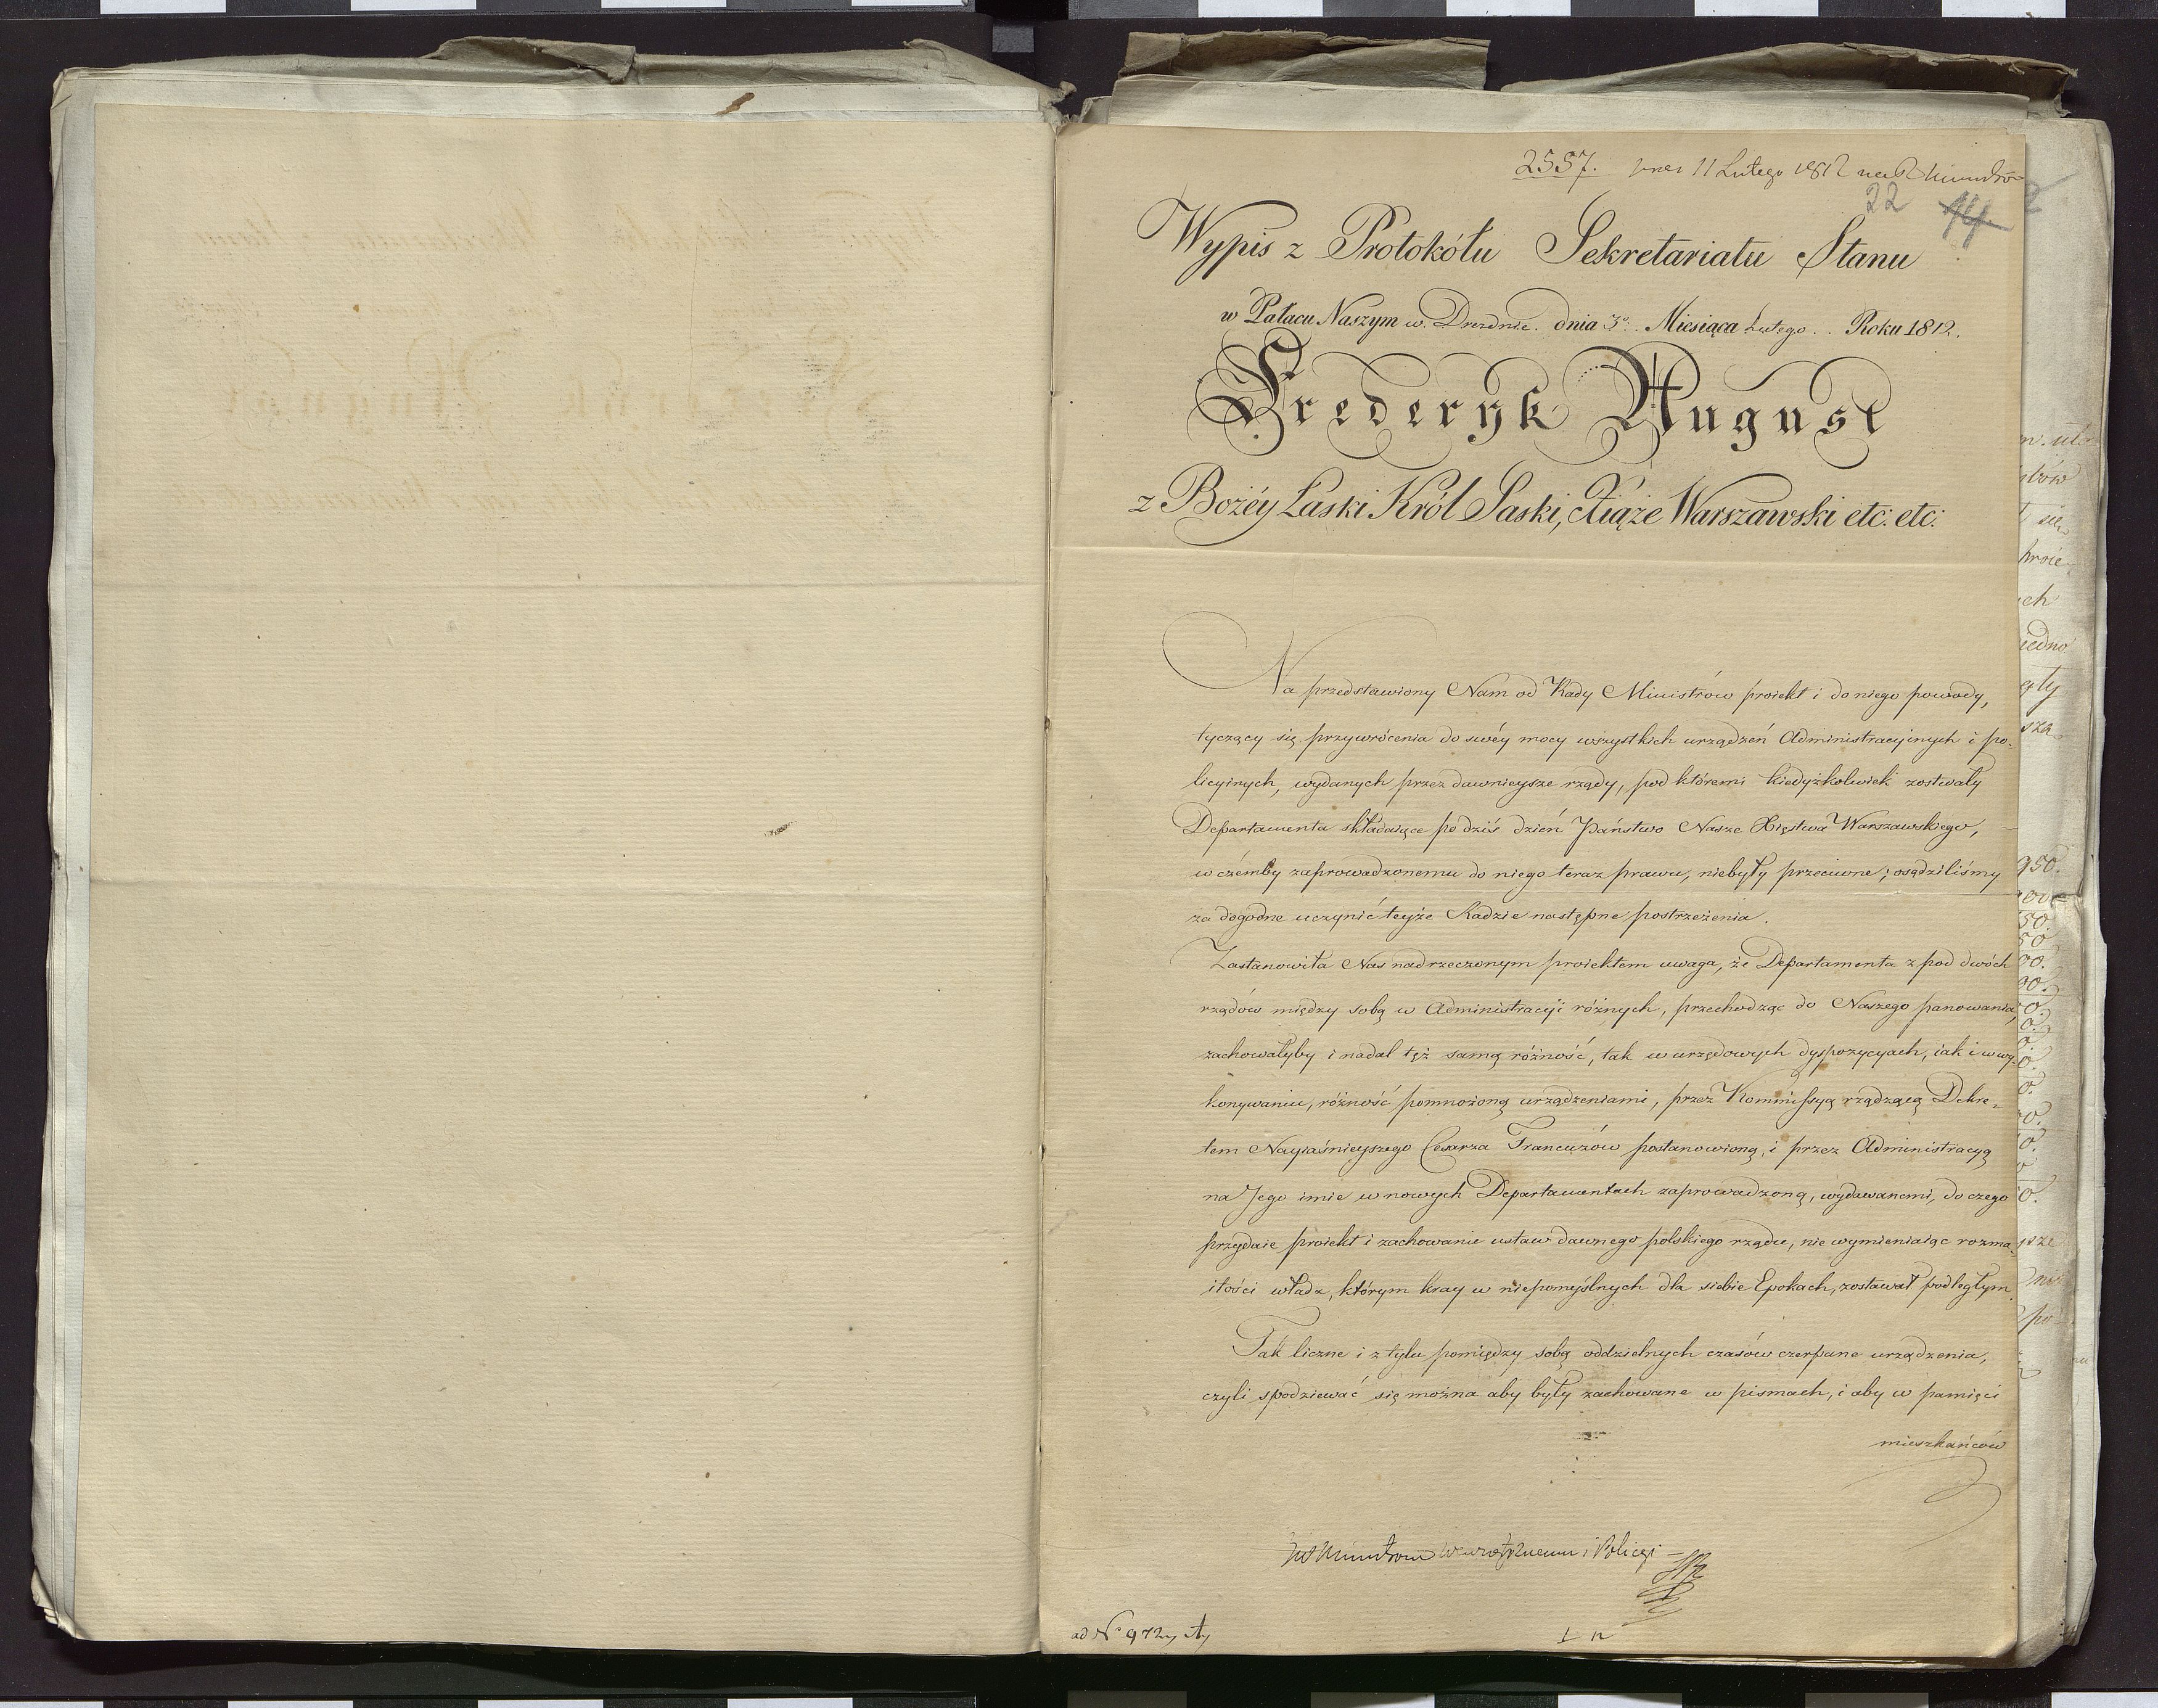 2557. 11 Lutego 1812
22 14
Wypis z Protokółu Sekretariatu Stanu
w Pałacu Naszym w. Dreznie. dnia 3º. Miesiąca Lutego.. Roku 1812.
Fryderyk August
z Bożéy Łaski Król Saski, Xiąże Warszawski etc: etc:
Na przedstawiony Nam od Rady Ministrów proiekt i do niego powody,
tyczący się przywrócenia do swéy mocy wszystkich urządzeń Administracyinych i po-
licyinych, wydanych przez dawnieysze rządy, pod któremi kiedyżkolwiek zostawały
Departamenta składaiące po dziś dzień Państwo Nasze Xięstwa Warszawskiego,
w czémby zaprowadzonemu do niego teraz prawu, niebyły przeciwne; osądziliśmy
za dogodne uczynić teyże Radzie następne postrzeżenia.
Zastanowiła Nas nad rzeczonym proiektem uwaga, że Departamenta z pod dwóch
rządów między sobą w Administracyi różnych, przechodząc do Naszego panowania,
zachowałyby i nadal też samą różność, tak w urzędowych dyspozycyach, iak i w wy-
konywaniu, różność pomnożoną urządzeniami, przez Kommissyą rządzącą Dekre-
tem Nayiaśnieyszego Cesarza Francuzów postanowioną, i przez Administracyą
na Jego imie w nowych Departamentach zaprowadzoną, wydawanemi, do czego
przydaie proiekt i zachowanie ustaw dawnego polskiego rządu, nie wymieniaiąc rozma-
itości władz, którym kray w niepomyślnych dla siebie Epokach, zostawał podległym.
Tak liczne i z tylu pomiędzy sobą oddzielnych czasów czerpane urządzenia,
czyli spodziewać się można aby były zachowane w pismach, i aby w pamięci
mieszkańców
Wewnętrznemu i Policyi –
ad Nº 972